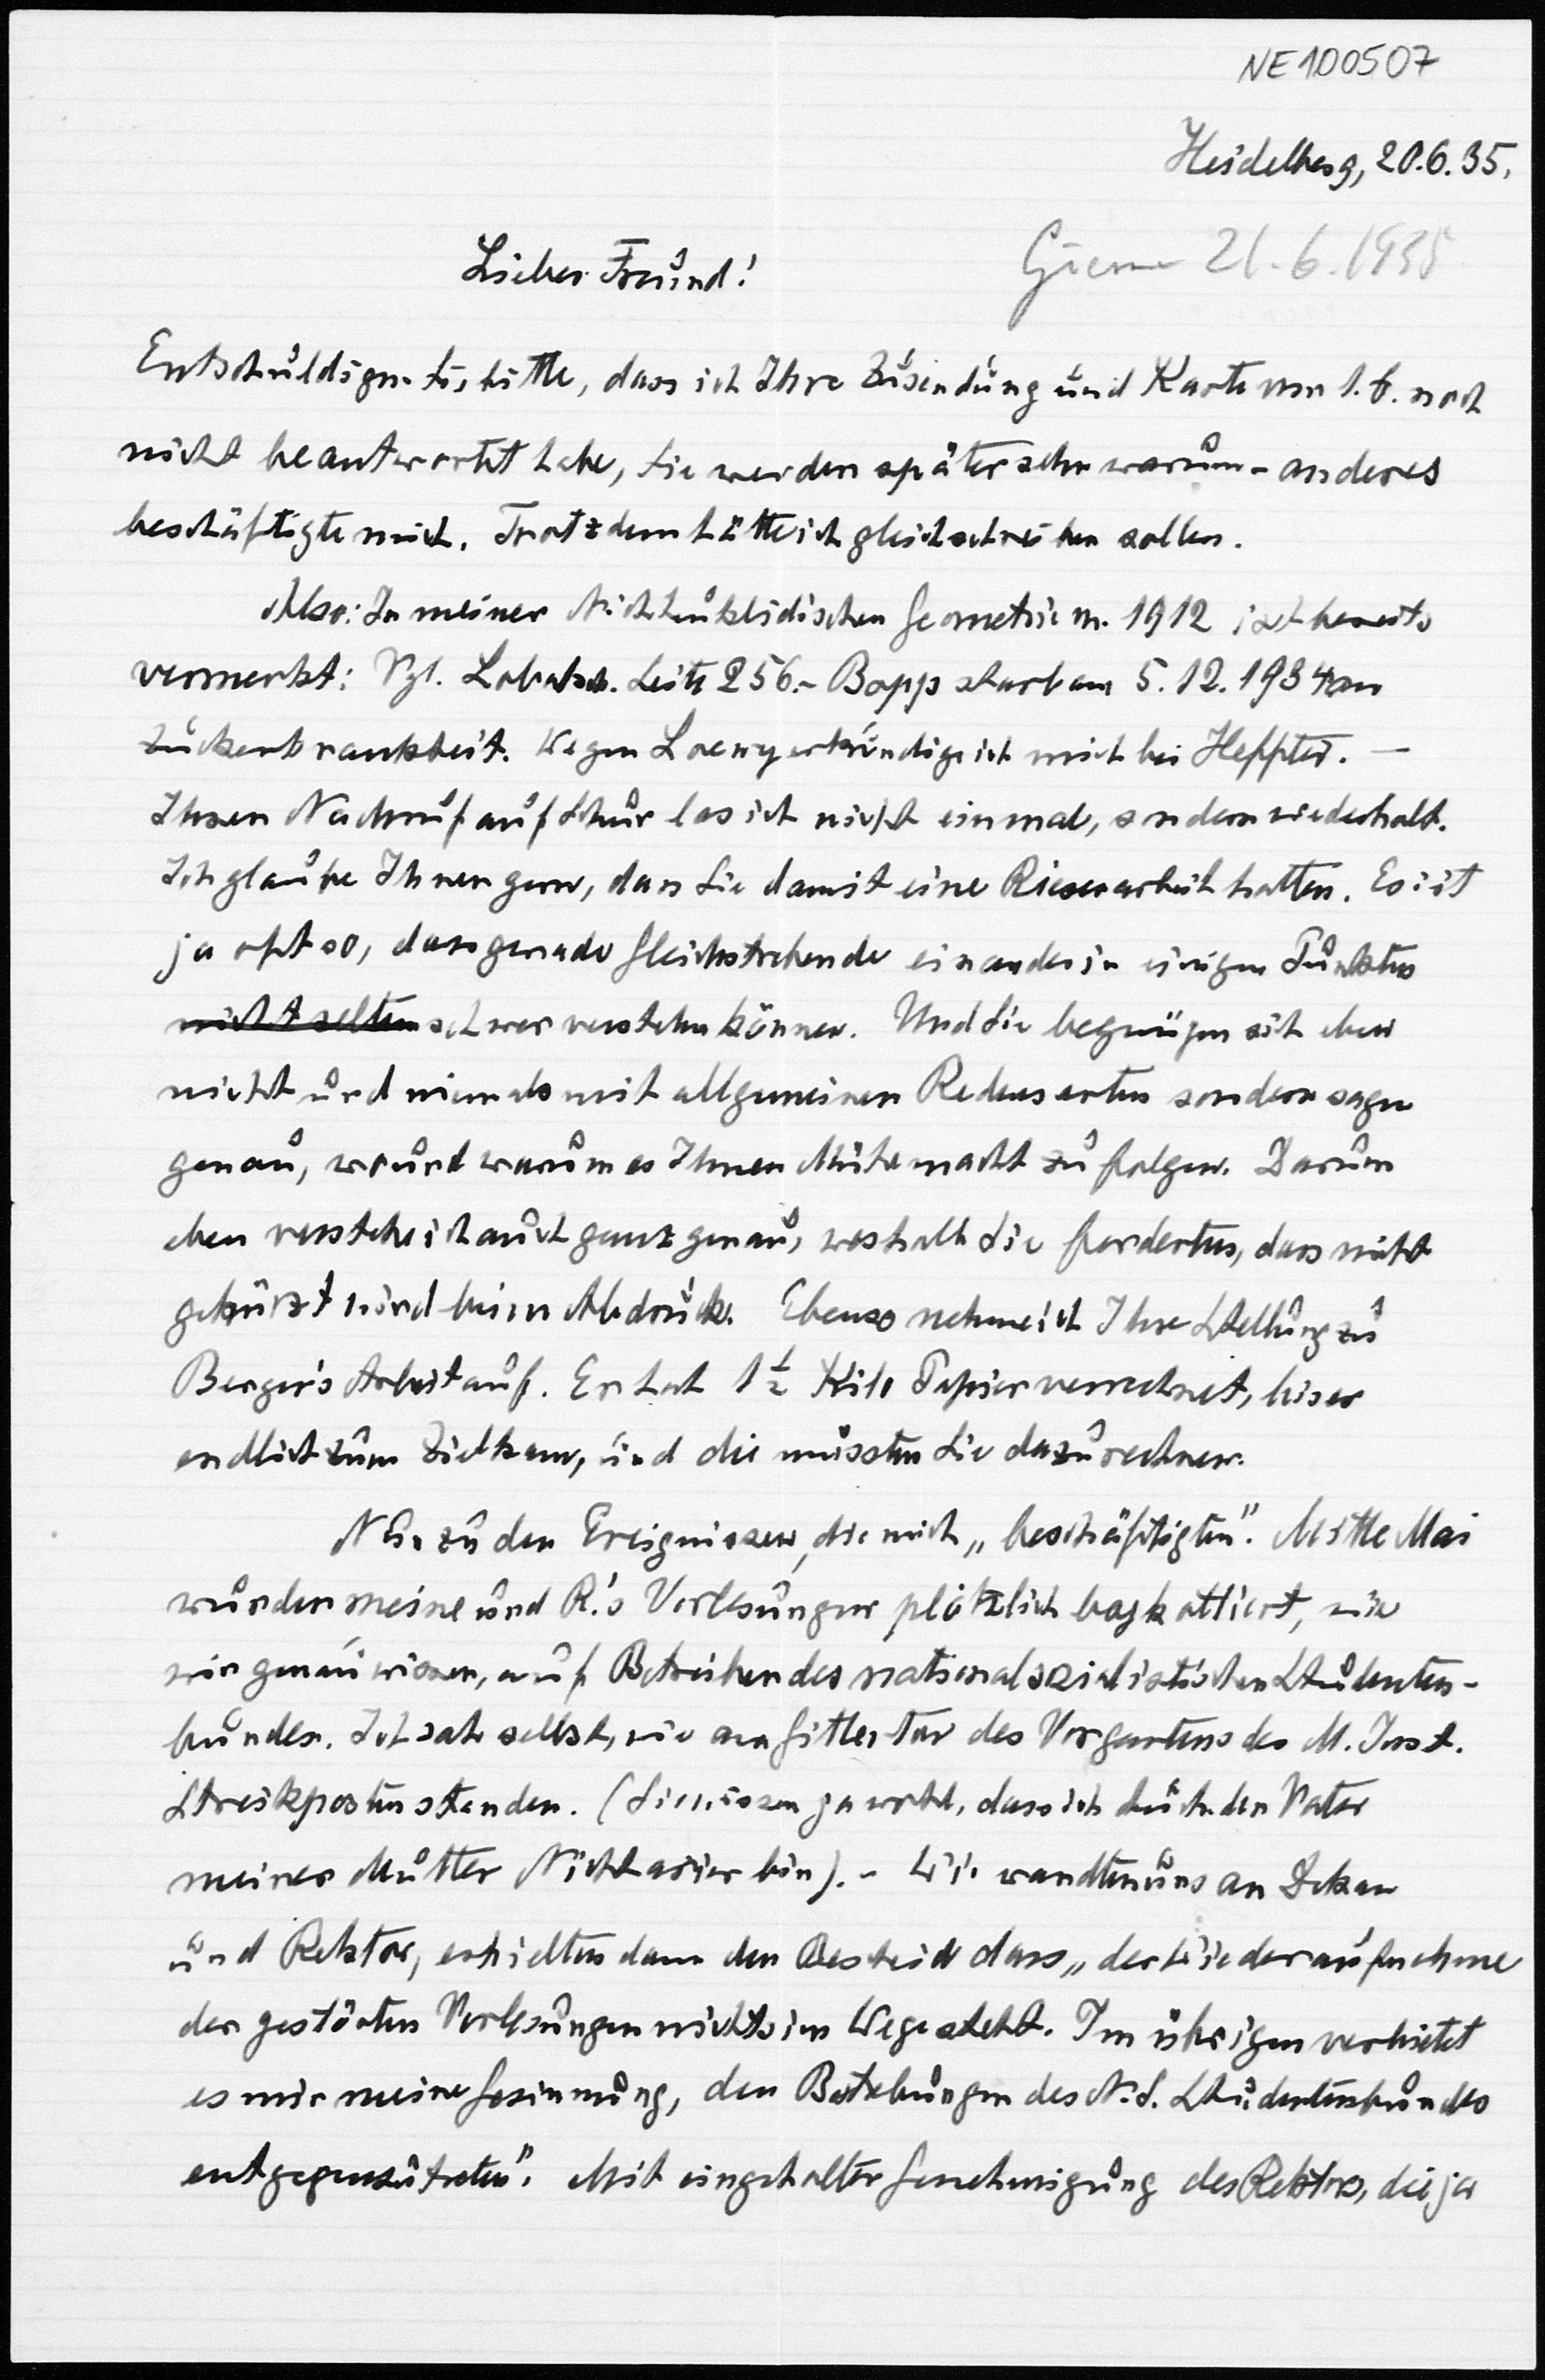 NE100507
Heidelberg, 20.6.35.
Lieber Freund!
21.6.1935
Entschuldigen Sie, bitte, dass ich Ihre Zusendung und Karte vom 1.6. noch
nicht beantwortet habe, Sie werden später sehn warum - anderes
beschäftigte mich. Trotzdem hätte ich gleich schreiben sollen.
Also: In meiner Nichteuklidischen Geometrie v. 1912 ist bereits
vermerkt: Vgl. Lobatsch. Seite 256. - Bopp starb am 5.12.1934 an
Zuckerkrankheit. Wegen Loewy erkundige ich mich bei Heffter. —
Ihren Nachruf auf Schur las ich nicht einmal, sondern wiederholt.
Ich glaube Ihnen gern, dass Sie damit eine Riesenarbeit hatten. Es ist
ja oft so, dass gerade Gleichstrebende einander in einigen Punkten
nicht selten schwer verstehn können. Und Sie begnügen sich eben
nicht und niemals mit allgemeinen Redensarten sondern sagen
genau, wo und warum es Ihnen Mühe macht zu folgen. Darum
eben verstehe ich auch ganz genau, weshalb Sie forderten, dass nicht
gekürzt wird beim Abdruck. Ebenso nehme ich Ihre Stellung zu
Berger's Arbeit auf. Er hat 1½ Kilo Papier verrechnet, bis er
endlich zum Ziel kam, und die mussten Sie dazu rechnen.
Nun zu den Ereignissen, die mich „beschäftigten". Mitte Mai
wurden meine und R.'s Vorlesungen plötzlich boykottiert, wie
wir genau wissen, auf Betreiben des nationalsozialistischen Studenten-
bundes. Ich sah selbst, wie am Gittertor des Vorgartens des M. Inst.
Streikposten standen. (Sie wissen ja wohl, dass ich durch den Vater
meiner Mutter Nichtarier bin). - Wir wandten uns an Dekan
und Rektor, erhielten dann den Bescheid dass „der Wiederaufnahme
der gestörten Vorlesungen nichts im Wege steht. Im übrigen verbietet
es mir meine Gesinnung, den Bestrebungen des N.S. Studentenbundes
entgegenzutreten". Mit eingeholter Genehmigung des Rektors, die ja